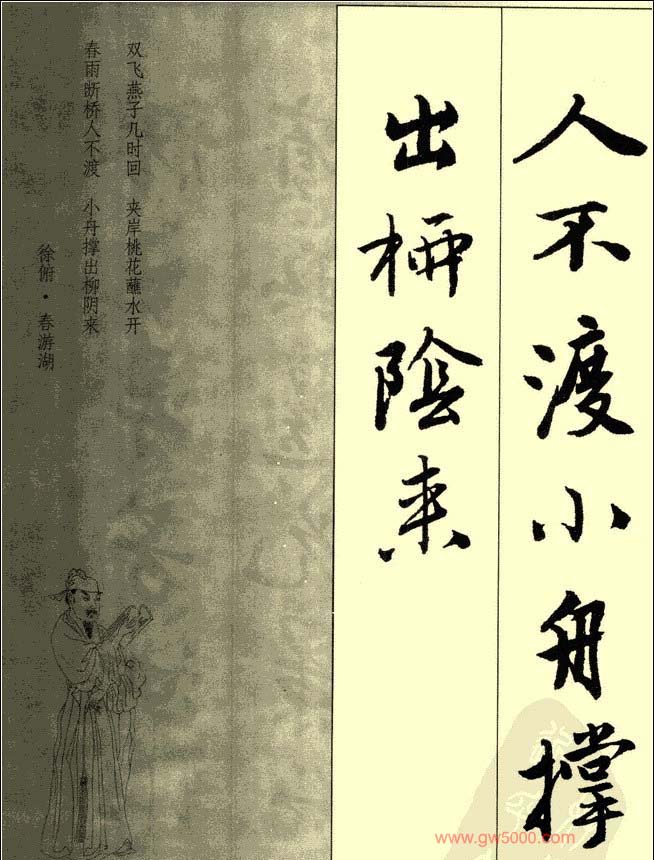 人不渡小舟撑
出柳陰来
双飞燕子几时回 夹岸桃花蘸水开
春雨断桥人不渡 小舟撑出柳阴来
徐俯·春游湖
www.gw5000.com